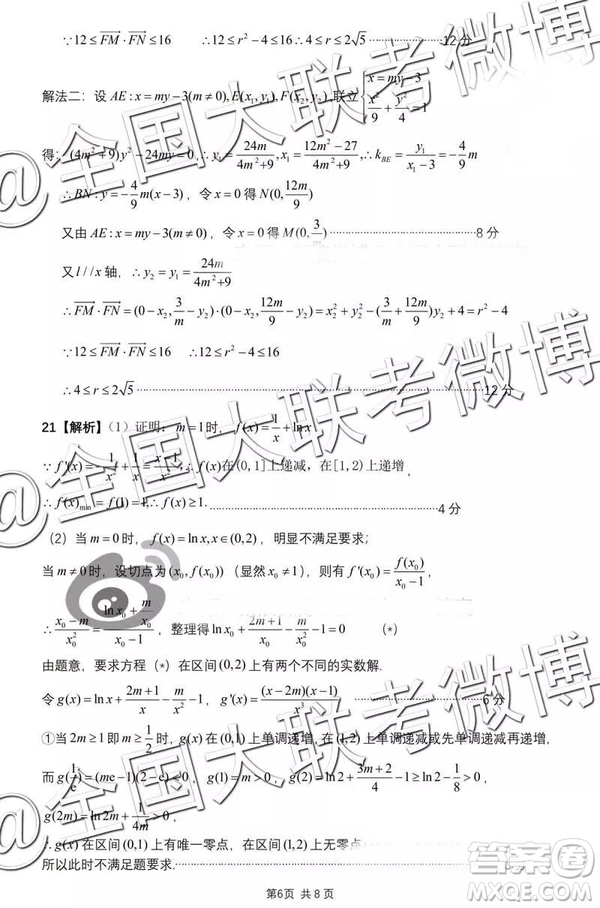 ∵12≤FM·FN≤16 ∴12≤r²-4≤16 ∴4≤r≤2√5 ············12分
解法二：设 AE: x=my-3(m≠0), E(x₁,y₁), F(x₂,y₂), 联立{x=my-3, x²/9+y²/4=1
得：(4m²+9)y²-24my=0, ∴y₁=24m/(4m²+9), x₁=(12m²-27)/(4m²+9) ∴k_BE=y₁/(x₁-3)=-4/9 m
∴BN: y=-4/9 m(x-3)，令 x=0 得 N(0,12m/9)
又由 AE: x=my-3(m≠0)，令 x=0 得 M(0,3/m) ············8分
又 l//x 轴，∴y₂=y₁=24m/(4m²+9)
∴FM·FN=(0-x₂,3/m-y₂)·(0-x₂,12m/9-y₂)=x₂²+y₂²-(3/m+12m/9)y₂+4=r²-4
∵12≤FM·FN≤16 ∴12≤r²-4≤16
∴4≤r≤2√5 ············12分
21【解析】（1）证明：m=1时，f(x)=1/x+lnx
∵f'(x)=-1/x²+1/x=(x-1)/x² ∴f(x)在(0,1]上递减，在[1,2)上递增，
∴f(x)min=f(1)=1, ∴f(x)≥1. ············4分
（2）当 m=0 时，f(x)=lnx, x∈(0,2)，明显不满足要求；
当 m≠0 时，设切点为(x₀,f(x₀))（显然 x₀≠1），则有 f'(x₀)=f(x₀)/(x₀-1)，
∴(x₀-m)/x₀²=(lnx₀+m/x₀)/(x₀-1)，整理得 lnx₀+(2m+1)/x₀-m/x₀²-1=0 (*)
由题意，要求方程（*）在区间(0,2)上有两个不同的实数解.
令 g(x)=lnx+(2m+1)/x-m/x²-1, g'(x)=(x-2m)(x-1)/x³ ············6分
①当 2m≥1 即 m≥1/2 时，g(x)在(0,1)上单调递增，在(1,2)上单调递减或先单调递减再递增，
而 g(1/e)=(me-1)(2-e)<0, g(1)=m>0, g(2)=ln2+(3m+2)/4-1≥ln2-1/8>0,
g(2m)=ln2m+1/4m>0,
∴g(x)在区间(0,1)上有唯一零点，在区间(1,2)上无零点，
所以此时不满足题要求. ············
第6页 共8页
@全国大联考微博
@全国大联考微博
@全国大联考微博
答案圈
MXQE.COM